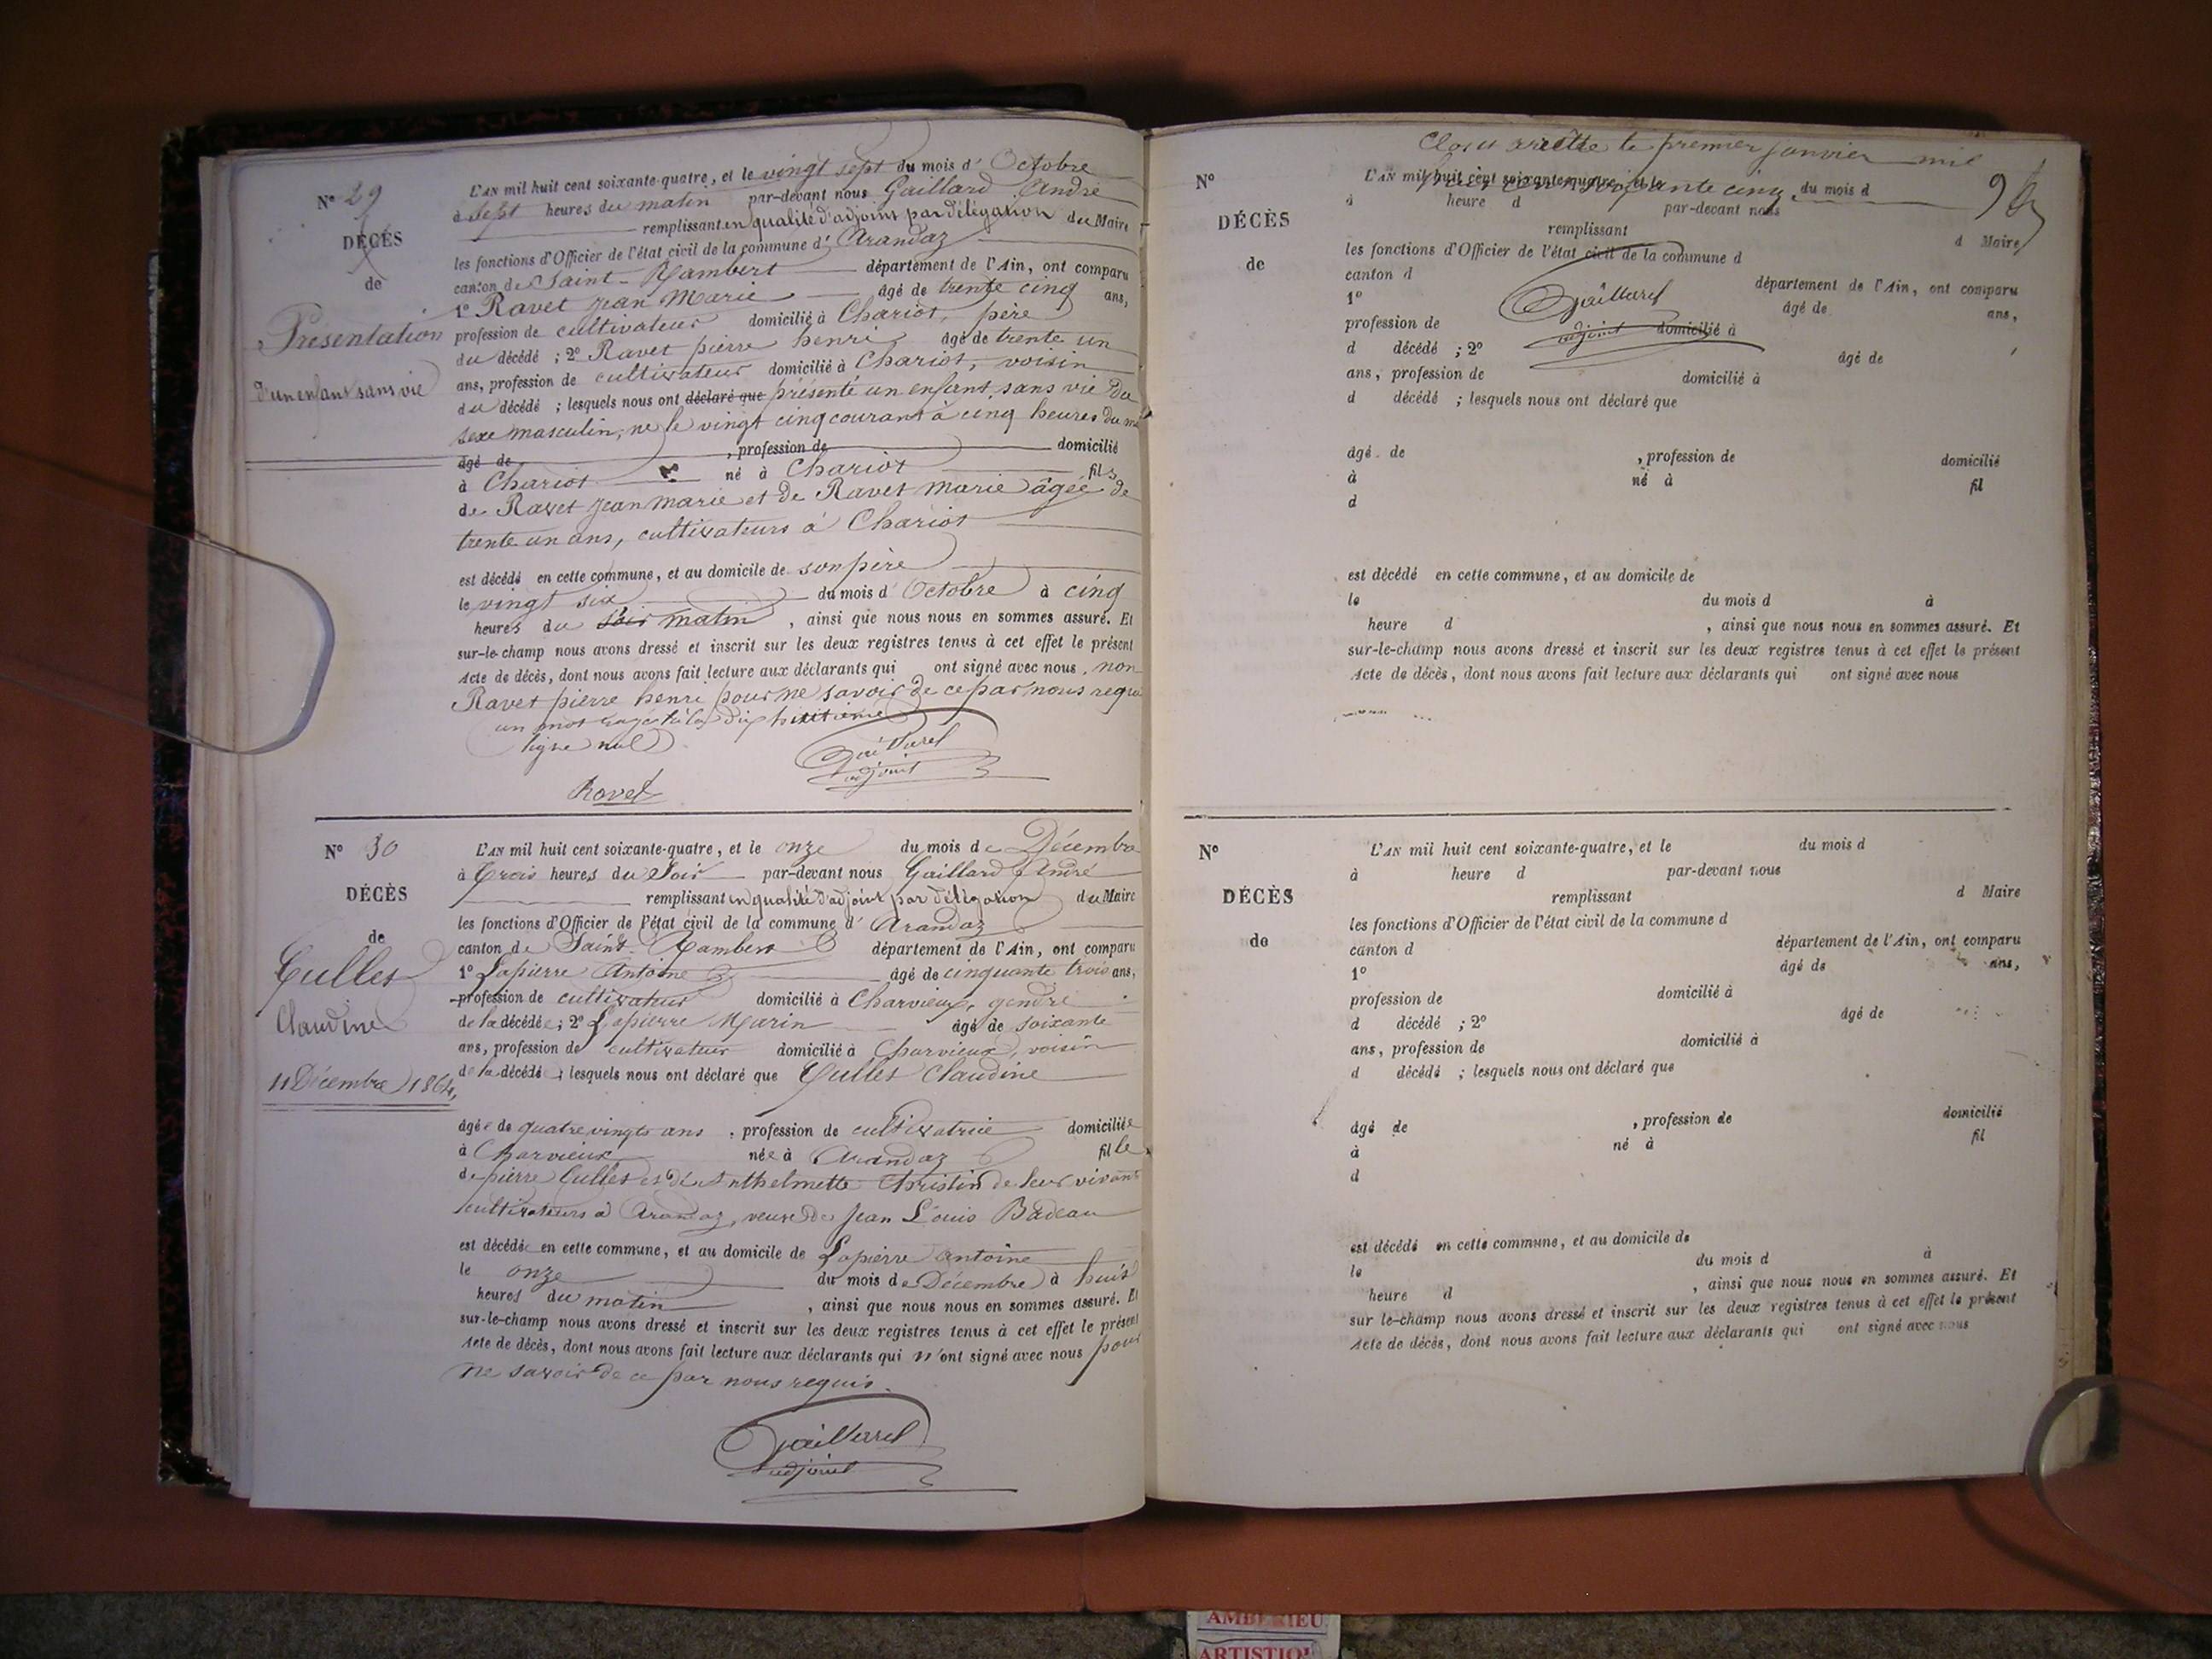 N° 29
DÉCÈS
de
Présentation
d'un enfant sans vie
L'AN mil huit cent soixante-quatre, et le vingt sept du mois d'Octobre
à sept heures du matin par-devant nous Gaillard André
remplissant en qualité d'adjoint par délégation du Maire
les fonctions d'Officier de l'état civil de la commune d'Arandaz
canton de Saint-Rambert département de l'Ain, ont comparu
1° Ravet jean Marie âgé de trente cinq ans,
profession de cultivateur domicilié à Chariot, père
du décédé ; 2° Ravet pierre henri âgé de trente un
ans, profession de cultivateur domicilié à Chariot, voisin
du décédé ; lesquels nous ont déclaré que présenté un enfant sans vie du
sexe masculin, né le vingt cinq courant à cinq heures du
âgé de , profession de domicilié
à Chariot né à Chariot fils
de Ravet jean marie et de Ravet marie âgée de
trente un ans, cultivateurs à Chariot
est décédé en cette commune, et au domicile de son père
le vingt six du mois d'Octobre à cinq
heures du soir matin , ainsi que nous nous en sommes assuré. Et
sur-le-champ nous avons dressé et inscrit sur les deux registres tenus à cet effet le présent
Acte de décès, dont nous avons fait lecture aux déclarants qui ont signé avec nous, non
Ravet pierre henri pour ne savoir de ce par nous requis
un mot rayé à la dix huitième
ligne nul
Gaillard
adjoint
Ravet
N° 30
DÉCÈS
de
Culles
Claudine
11 Décembre 1864,
L'AN mil huit cent soixante-quatre, et le onze du mois de Décembre
à trois heures du soir par-devant nous Gaillard André
remplissant en qualité d'adjoint par délégation du Maire
les fonctions d'Officier de l'état civil de la commune d'Arandaz
canton de Saint-Rambert département de l'Ain, ont comparu
1° Lapierre Antoine âgé de cinquante trois ans,
profession de cultivateur domicilié à Charvieux, gendre
de la décédée ; 2° Lapierre Marin âgé de soixante
ans, profession de cultivateur domicilié à Charvieux, voisin
de la décédée ; lesquels nous ont déclaré que Culles Claudine
âgée de quatre vingts ans , profession de cultivatrice domiciliée
à Charvieux née à Arandaz fille
de pierre Culles et de Anthelmette Christin de leur vivant
cultivateurs à Arandaz, veuve de Jean Louis Badeau
est décédée en cette commune, et au domicile de Lapierre antoine
le onze du mois de Décembre à huit
heures du matin , ainsi que nous nous en sommes assuré. Et
sur-le-champ nous avons dressé et inscrit sur les deux registres tenus à cet effet le présent
Acte de décès, dont nous avons fait lecture aux déclarants qui n'ont signé avec nous pour
ne savoir de ce par nous requis.
Gaillard
adjoint
Clos et arrêtté le premier janvier mil
huit cent soixante cinq
N°
DÉCÈS
de
L'AN mil huit cent soixante-quatre, et le du mois d
à heure d par-devant nous
remplissant d Maire
les fonctions d'Officier de l'état civil de la commune d
canton d département de l'Ain, ont comparu
Gaillard
1° âgé de ans,
profession de domicilié à
adjoint
d décédé ; 2° âgé de
ans, profession de domicilié à
d décédé ; lesquels nous ont déclaré que
âgé de , profession de domicilié
à né à fil
d
est décédé en cette commune, et au domicile de
le du mois d à
heure d , ainsi que nous nous en sommes assuré. Et
sur-le-champ nous avons dressé et inscrit sur les deux registres tenus à cet effet le présent
Acte de décès, dont nous avons fait lecture aux déclarants qui ont signé avec nous
N°
DÉCÈS
de
L'AN mil huit cent soixante-quatre, et le du mois d
à heure d par-devant nous
remplissant d Maire
les fonctions d'Officier de l'état civil de la commune d
canton d département de l'Ain, ont comparu
1° âgé de ans,
profession de domicilié à
d décédé ; 2° âgé de
ans, profession de domicilié à
d décédé ; lesquels nous ont déclaré que
âgé de , profession de domicilié
à né à fil
d
est décédé en cette commune, et au domicile de
le du mois d à
heure d , ainsi que nous nous en sommes assuré. Et
sur-le-champ nous avons dressé et inscrit sur les deux registres tenus à cet effet le présent
Acte de décès, dont nous avons fait lecture aux déclarants qui ont signé avec nous
AMBERIEU
ARTISTIQ